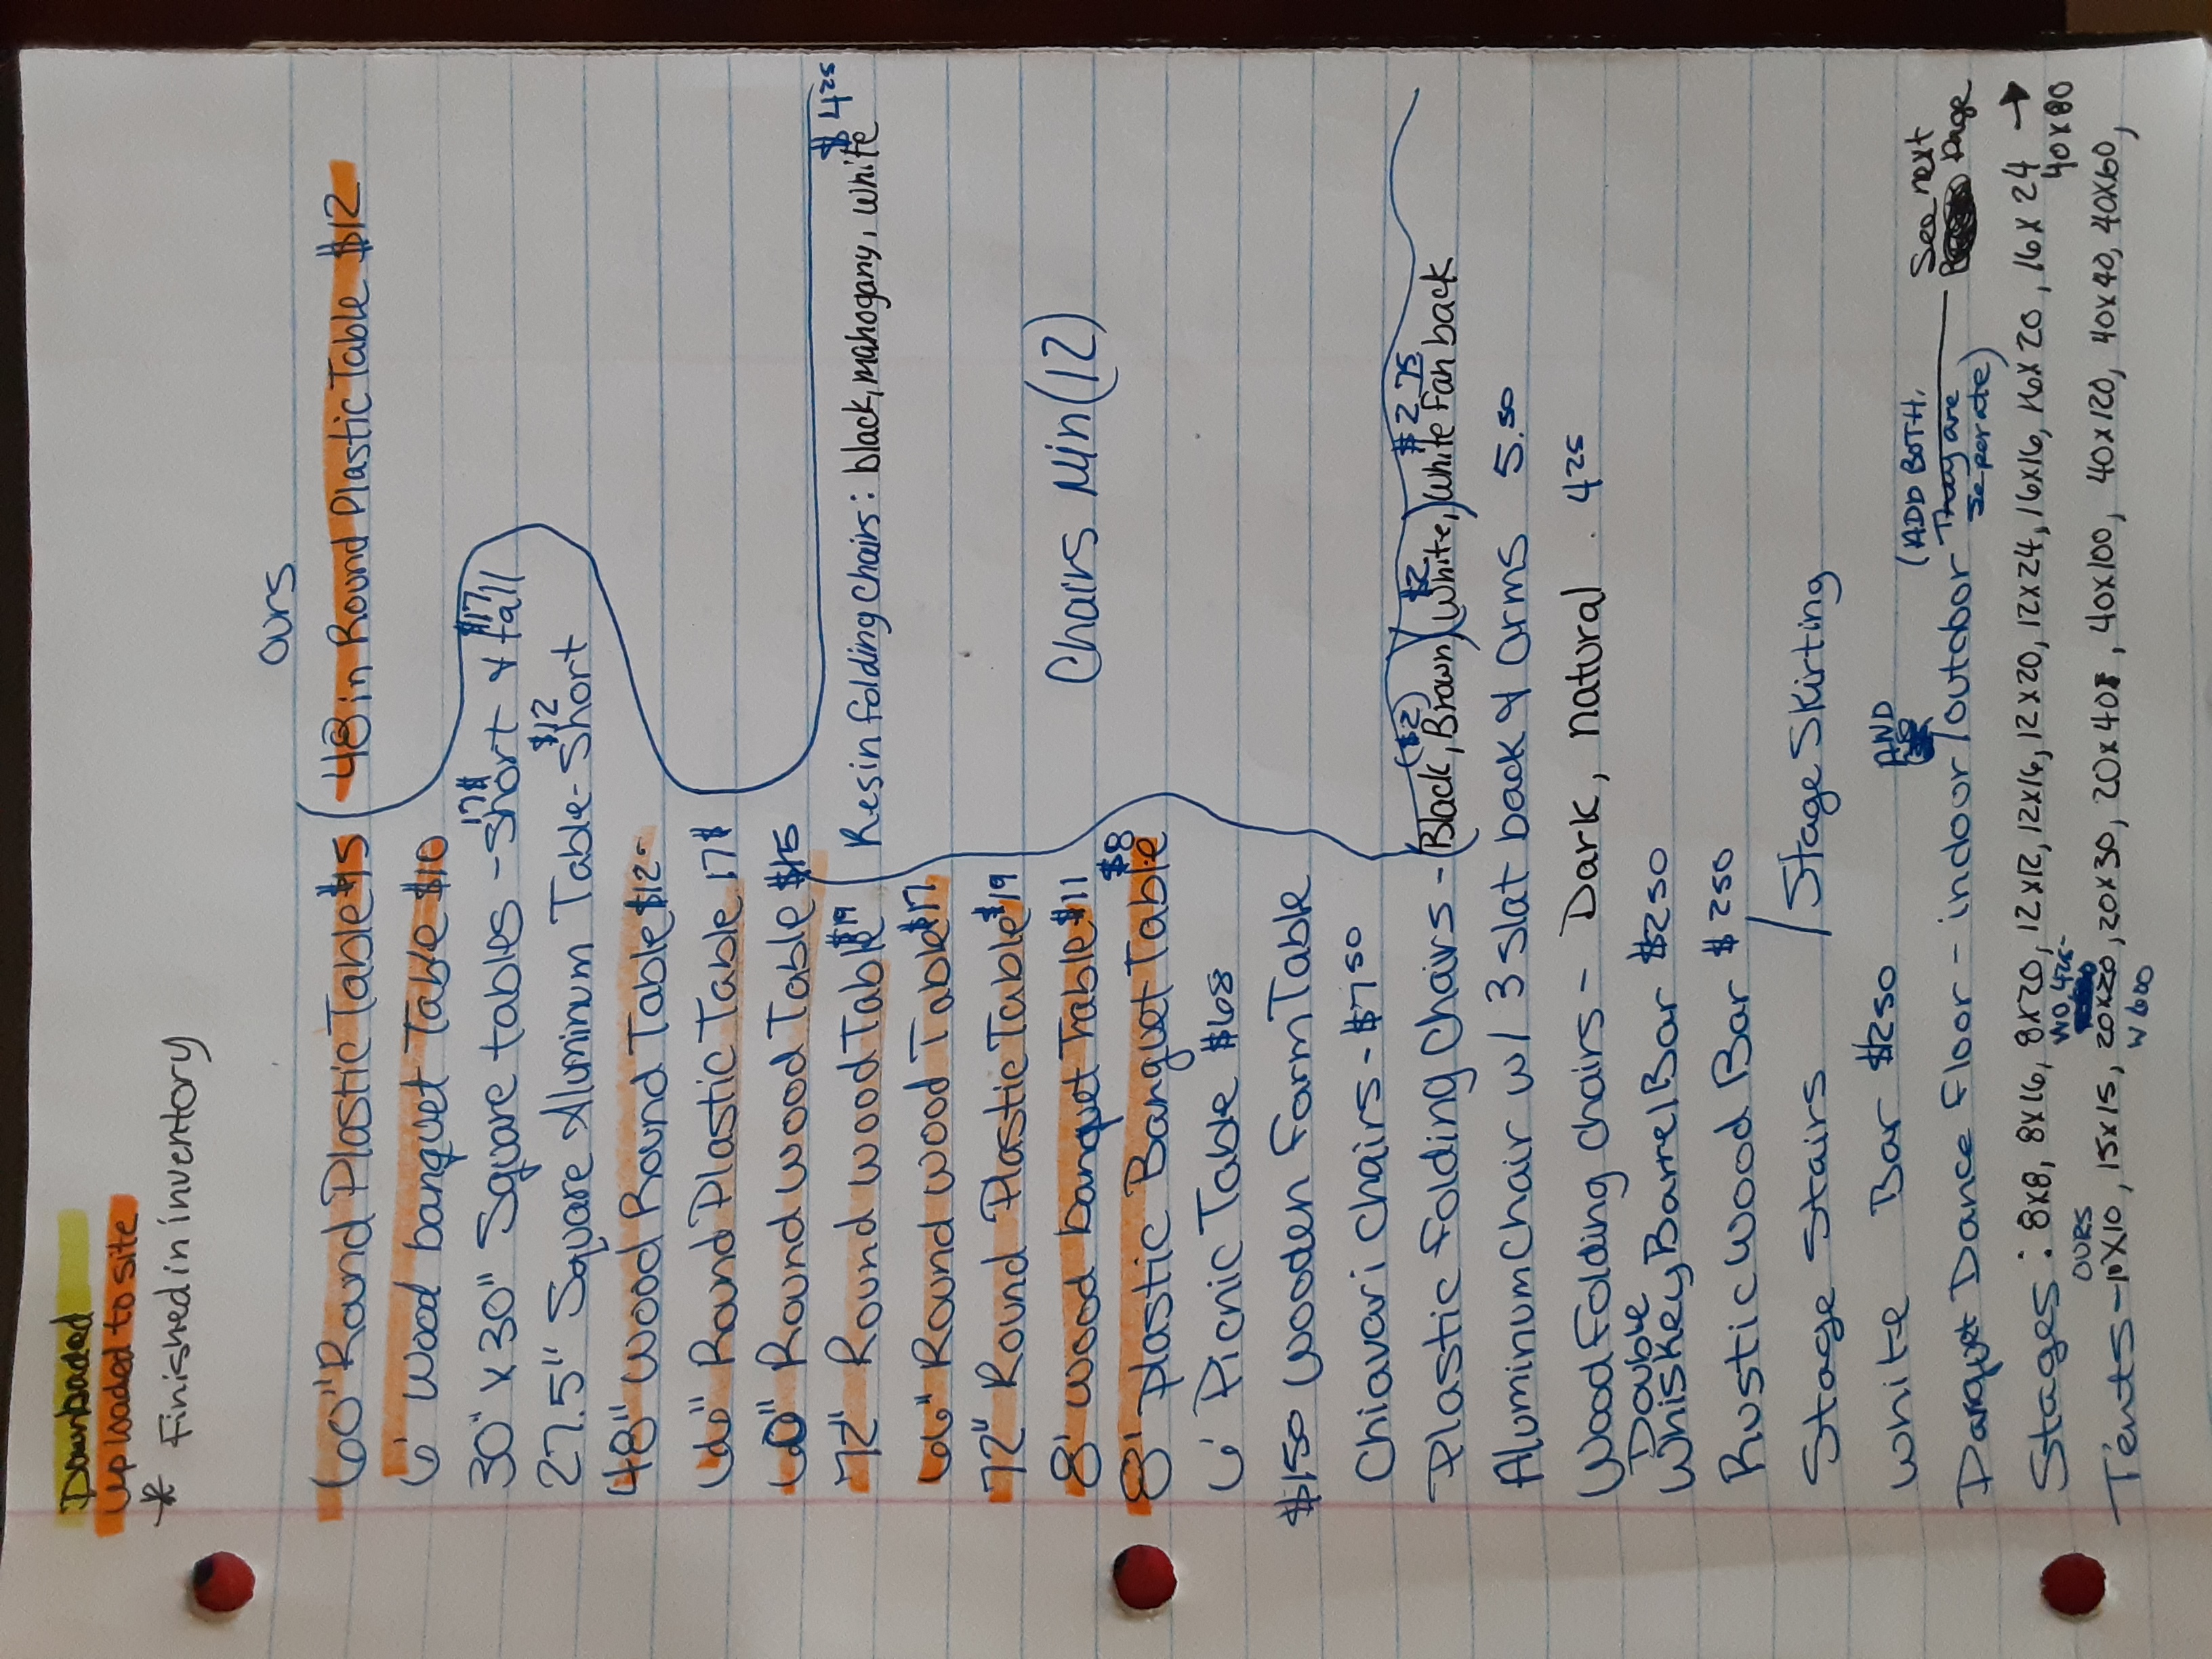 Downloaded
Uploaded to site
* Finished in inventory
Ours
60" Round Plastic Table $15
48in Round Plastic Table $12
6' Wood banquet Table $10
30" x 30" Square tables - Short 17$ & tall $17
27.5" Square Aluminum Table - Short $12
48" Wood Round Table $12-
66" Round Plastic Table 17$
60" Round Wood Table $15
$4 25
72" Round Wood Table $19
Resin folding chairs: black, mahogany, white
66" Round Wood Table $17
72" Round Plastic Table $19
8' Wood banquet Table $11
Chairs Min (12)
8' Plastic Banquet Table $8
6' Picnic Table $68
$150 Wooden Farm Table
Chiavari Chairs - $7 50
Plastic Folding Chairs - (Black, Brown) ($2) (White, $2) White Fan back $2 75
Aluminum Chair w/ 3 Slat back & arms 5.50
Wood Folding Chairs - Dark, natural 4 25
Double
Whiskey Barrel Bar $250
Rustic Wood Bar $250
Stage Stairs / Stage Skirting
White Bar $250
AND
(ADD BOTH.
Parquet Dance floor - indoor/outdoor They are seperate)
See next Page
Stages: 8x8, 8x16, 8x20, 12x12, 12x16, 12x20, 12x24, 16x16, 16x20, 16x24 →
OURS
wo 425-
40x80
Tents - 10x10, 15x15, 20x20, 20x30, 20x40, 40x100, 40x120, 40x40, 40x60,
w 600